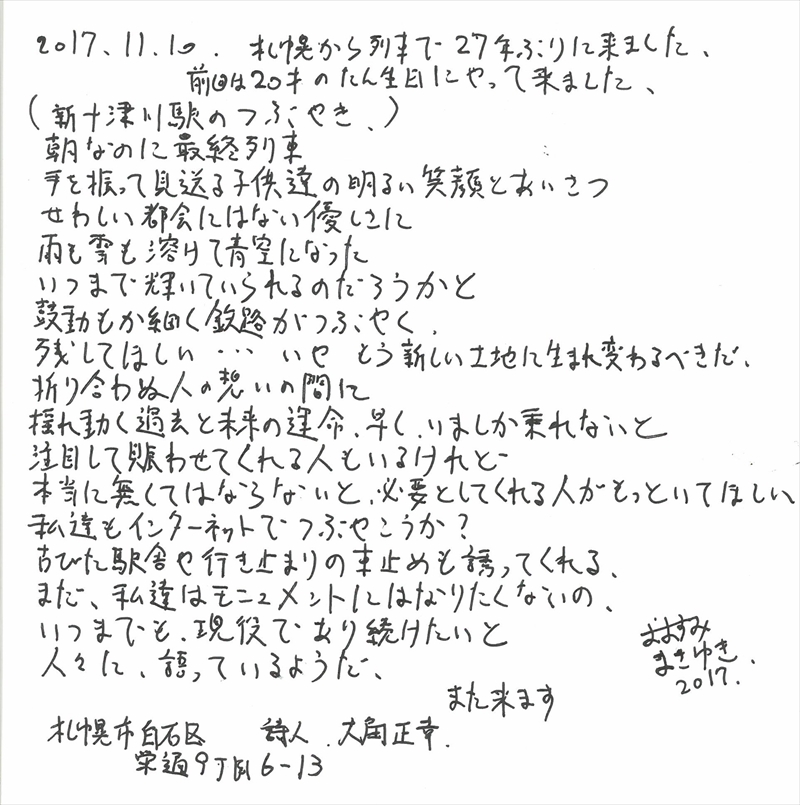 2017.11.10. 札幌から列車で27年ぶりに来ました、
前回は20才のたん生日にやって来ました、
(新十津川駅のつぶやき、)
朝なのに最終列車
手を振って見送る子供達の明るい笑顔とあいさつ
せわしい都会にはない優しさに
雨も雲も溶けて青空になった
いつまで輝いていられるのだろうかと
鼓動もか細く鉄路がつぶやく、
残してほしい… いや もう新しい土地に生まれ変わるべきだ、
折り合わぬ人の想いの間に
揺れ動く過去と未来の運命、早く、いましか乗れないと
注目して賑わせてくれる人もいるけれど
本当に無くてはならないと、必要としてくれる人がもっといてほしい
私達もインターネットでつぶやこうか?
古びた駅舎や行き止まりの車止めも誘ってくれる、
まだ、私達はモニュメントにはなりたくないの、
いつまでも、現役であり続けたいと
人々に、語っているようだ、
おおすみ
まさゆき
2017.
また来ます
札幌市白石区 詩人 大角正幸.
栄通9丁目6-13